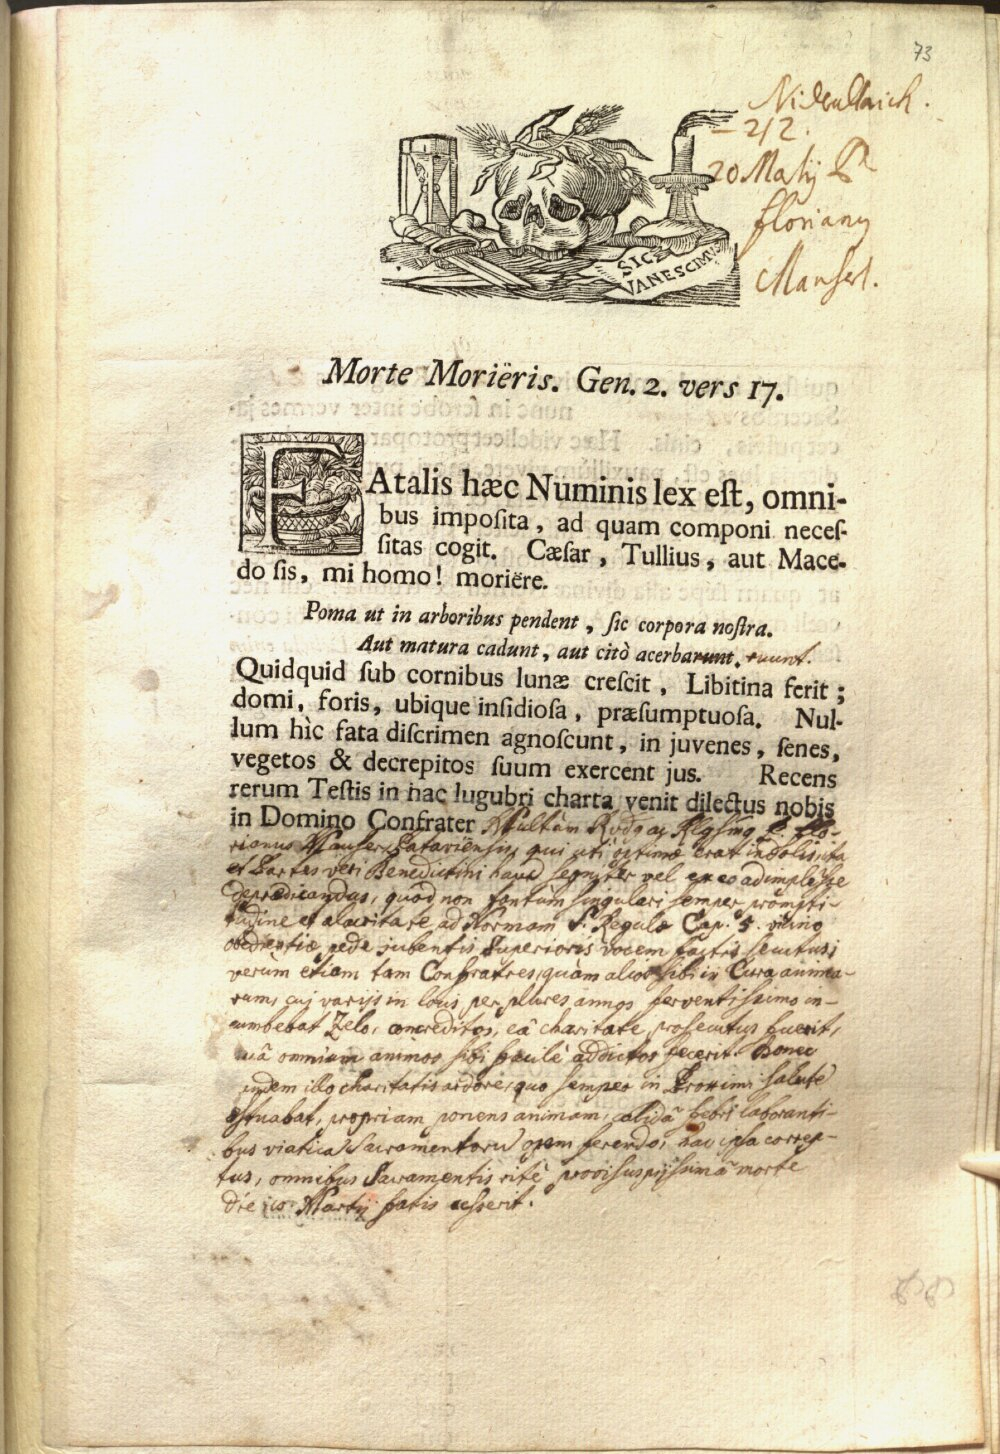 73
Niderallaich.
— 212.
20 Martij P.
Florianus
Mauserl.
SIC
VANESCIMUS
Morte Moriëris. Gen. 2. vers 17.
FAtalis hæc Numinis lex eſt, omni-
bus impoſita, ad quam componi neceſ-
ſitas cogit. Cæſar, Tullius, aut Mace-
do ſis, mi homo! moriëre.
Poma ut in arboribus pendent, ſic corpora noſtra.
Aut matura cadunt, aut citò acerbarunt. ruunt.
Quidquid ſub cornibus lunæ creſcit, Libitina ferit;
domi, foris, ubique inſidioſa, præſumptuoſa. Nul-
lum hìc fata diſcrimen agnoſcunt, in juvenes, ſenes,
vegetos & decrepitos ſuum exercent jus. Recens
rerum Teſtis in hac lugubri charta venit dilectus nobis
in Domino Confrater Multùm P. Flo-
rianus qui uti optimæ erat indolis, ita
et Partes veri Benedictini haud segniter vel ex eo adimplésse
deprædicandus, quòd non tantùm singulari semper prompti-
tudine et alacritate ad Normam S. Regulæ Cap. 5. vicino
obedientiæ pede jubentis Superioris vocem factis secutus;
verùm etiam tam Confratres, quàm alios sibi in Cura anima-
rum, cui varijs in locis per plures annos ferventissimo in-
cumbebat Zelo, concreditos, eâ charitate prosecutus fuerit,
quâ omnium animos sibi facilè addictos fecerit. Donec
eodem illo charitatis ardore, quo semper in Proximi salute
æstuabat, propriam ponens animam, calidâ febri laboranti-
bus viatica Sacramentorum opem ferendo, hac ipsa correp-
tus, omnibus Sacramentis ritè provisus pijssimâ morte
die Martij fatis cesserit.